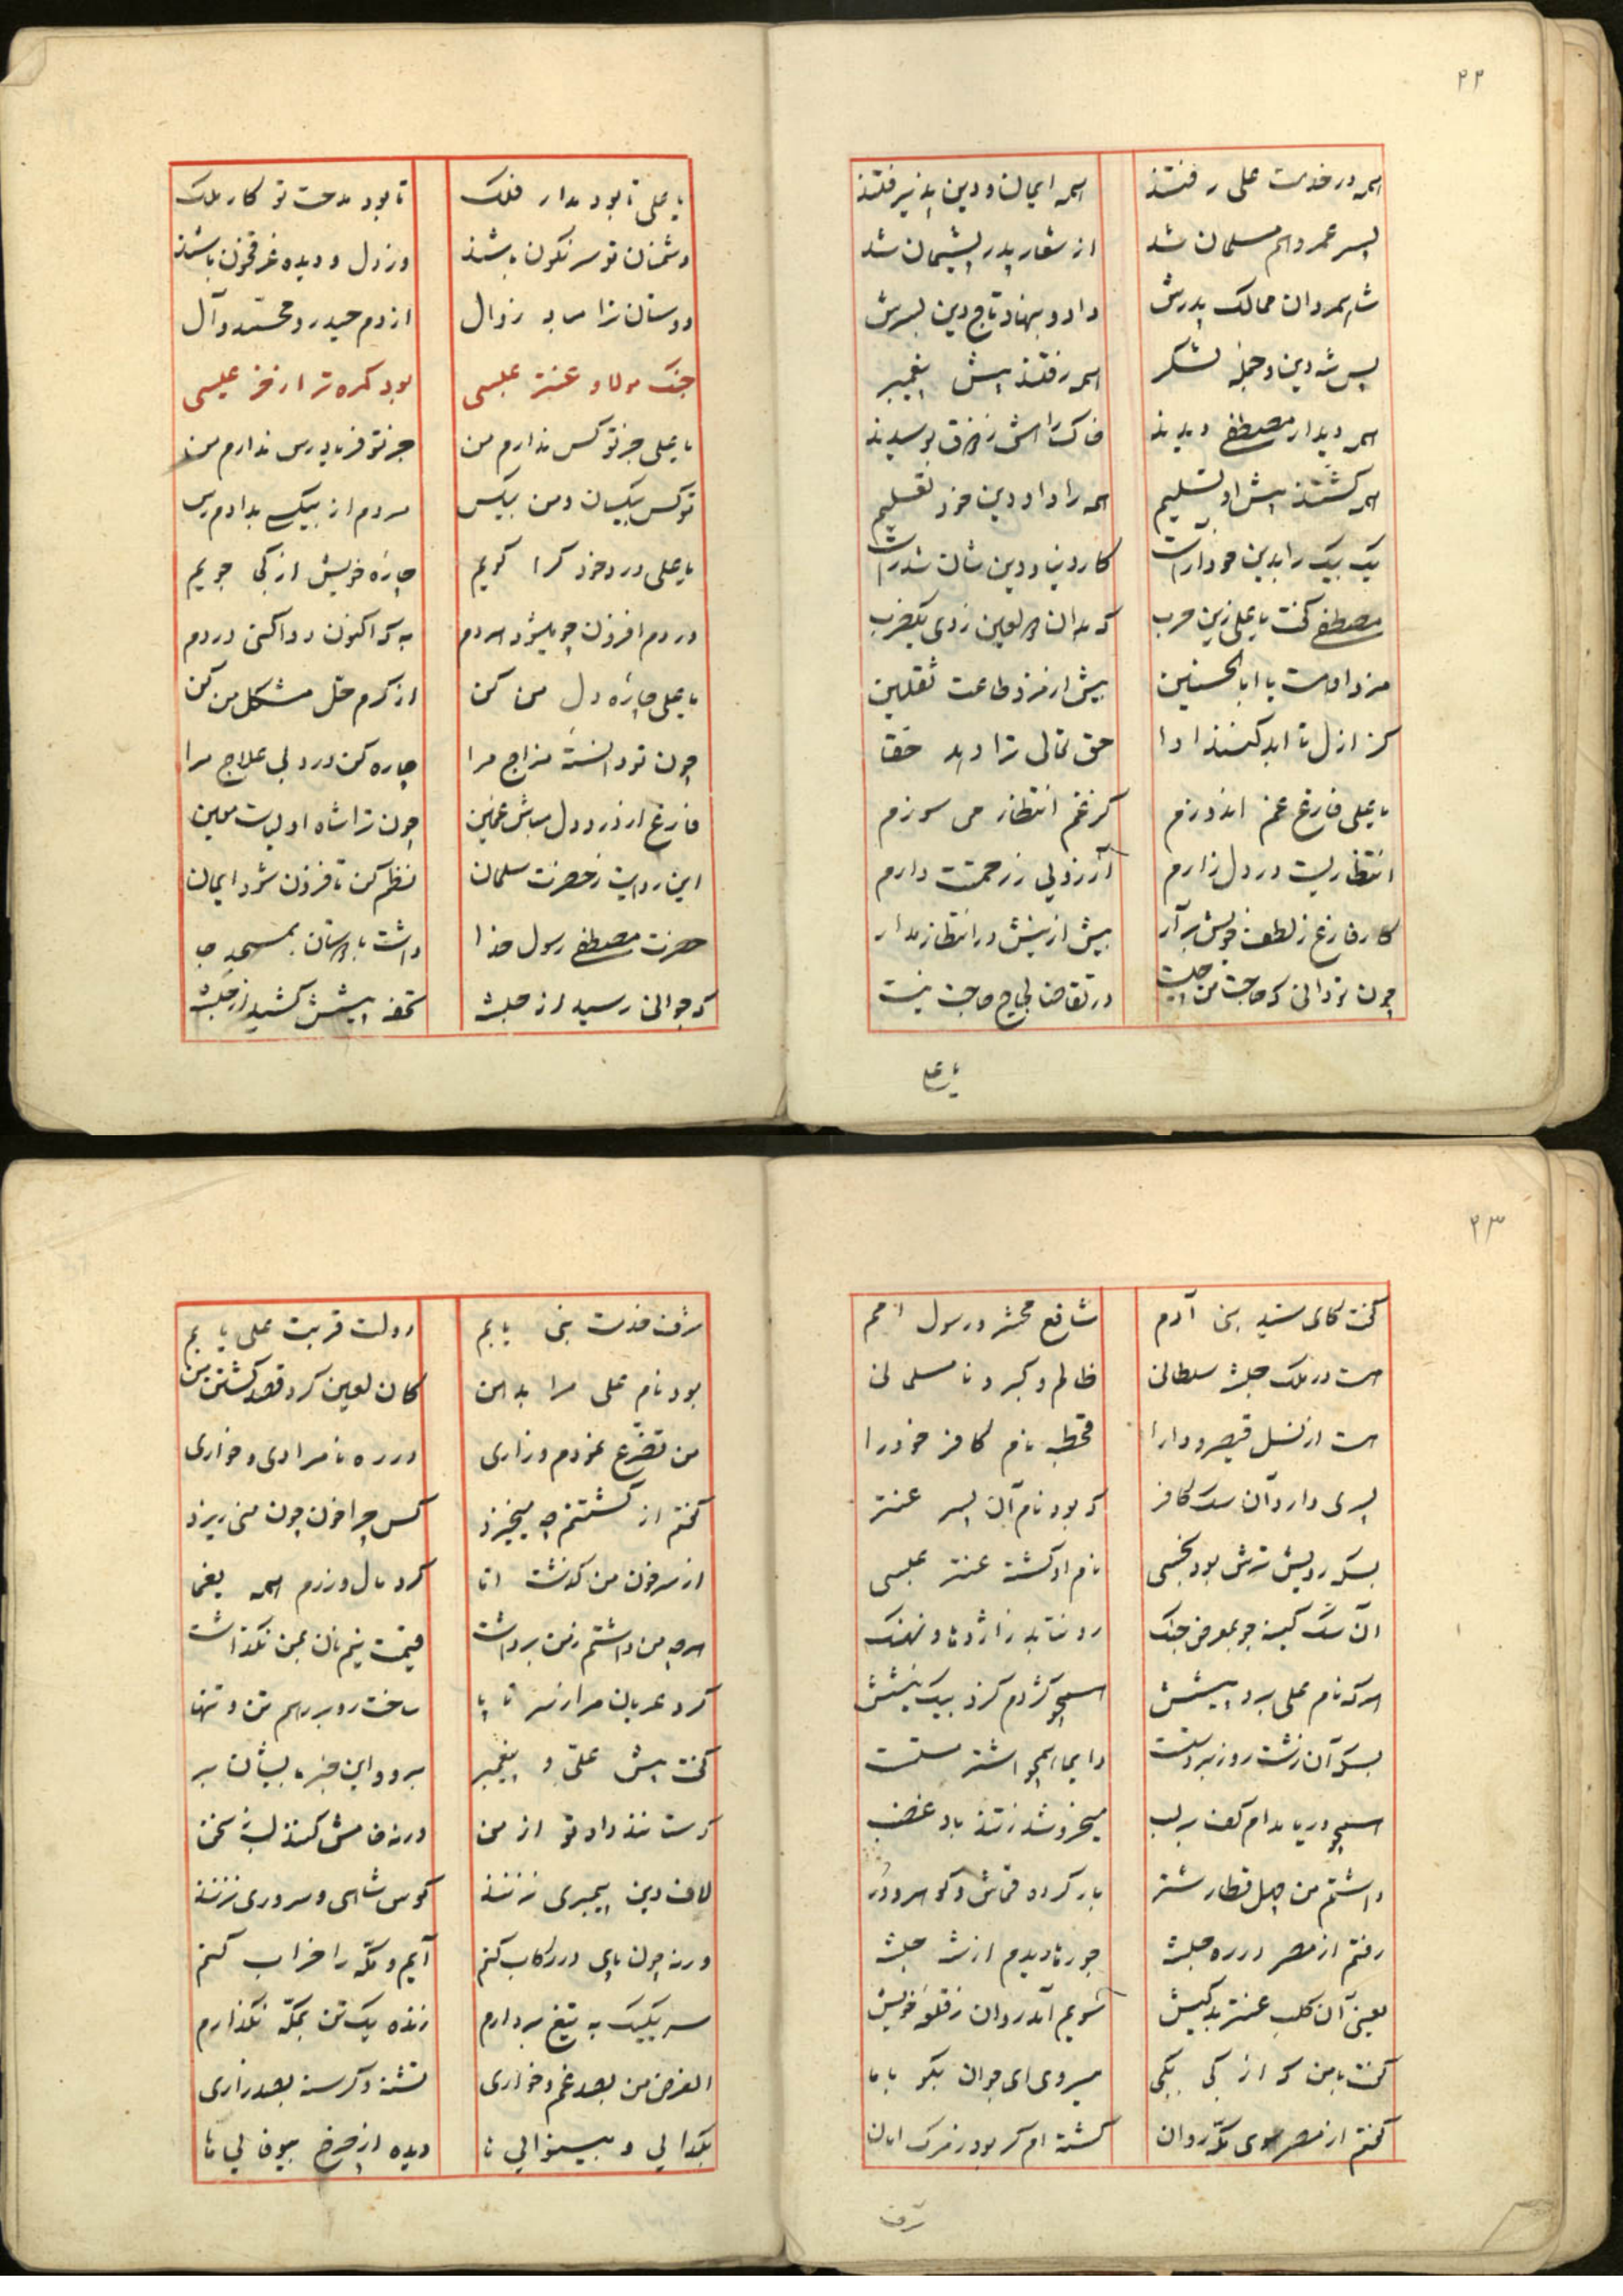 ۲۲
همه در خدمت علی رفتند همه ایمان و دین پذیرفتند
پسر عمرو هم مسلمان شد از شعار پدر پشیمان شد
شاه مردان ممالک پدرش داد و بنهاد تاج دین بسرش
پس شه دین و جمله لشکر همه رفتند پیش پیغمبر
همه دیدار مصطفی دیدند خاک راهش ز شوق بوسیدند
همه گشتند پیش او تسلیم همه را داد دین خود تعلیم
یک بیک را بدین خود آراست کار دنیا و دین شان شد راست
مصطفی گفت یا علی زین حرب که بدان لعین زدی یکضرب
مزد دادت یا اباالحسنین بیش از مزد طاعت ثقلین
کز ازل تا ابد کنند ادا حق تعالی ترا دهد حقا
یا علی فارغ غم اندوزم کز غم انتظار می سوزم
انتظاریست در دل زارم آرزویی ز رحمتت دارم
کار فارغ ز لطف خویش برآر بیش ازینش در انتظار مدار
چون تو دانی که حاجت من چیست در تقاضا لجاج حاجت نیست
یا علی
یا علی تا بود مدار فلک تا بود مدحت تو کار ملک
دشمنان تو سرنگون باشند وز دل و دیده غرقخون باشند
دوستان ترا مباد زوال از دم حیدر و محمّد و آل
جنک مولا و عنتر عبسی بود کمره تر از خر عیسی
یا علی جز تو کس ندارم من جز تو فریادرس ندارم من
تو کس بیکسان و من بیکس مردم از بیکسی بدادم رس
یا علی درد خود کرا کویم چاره خویش از کی جویم
دردم افزون چو میشود هردم به که اکنون دوا کنی دردم
یا علی چاره دل من کن از کرم حل مشکل من کن
چون تو دانستهٔ مزاج مرا چاره کن درد بی علاج مرا
فارغ از درد دل مباش غمین چون ترا شاه اولیاست معین
این روایت ز حضرت سلمان نظم کن تا فزون شود ایمان
حضرت مصطفی رسول خدا داشت با دوستان بمسجد جا
که جوانی رسید از حبشه تحفه پیشش کشید از حبشه
۲۳
گفت کای سید بنی آدم شافع محشر و رسول امم
هست در ملک حبشه سلطانی ظالم و کبر و نامسلمانی
هست از نسل قیصر و دارا قحطبه نام کافر خود را
پسری دارد آن سک کافر که بود نام آن پسر عنتر
بسکه رویش ترش بود نحسی نام او کشته عنتر عبسی
آن سک کینه جو بمعرض جنک رو نتابد ز اژدها و نهنک
هر که نام علی برد پیشش همچو کژدم کزد بیک نیشش
بسکه آن زشت روز بد مست دایما همچو اشتر مستست
همچو دریا مدام کف بر لب میخروشد ز تند باد غضب
داشتم من چهل قطار شتر بار کرده قماش و کوهر و در
رفتم از مصر در ره حبشه جورها دیدم از شه حبشه
یعنی آن کلب عنتر بدکیش سویم آمد روان ز قلعه خویش
گفت با من که از کی بکی میروی ای جوان بکو با ما
گفتم از مصر سوی مکه روان کشته ام کر بود ز مرک امان
شرف
شرف خدمت نبی یابم دولت قربت علی یابم
بود نام علی مرا بدهن کان لعین کرد قصد کشتن من
من تضرّع نمودم و زاری در ره نامرادی و خواری
گفتم از کشتنم چه میخیزد کس چرا خون چون منی ریزد
از سر خون من کذشت اما کرد مال و زرم همه یغما
هرچه من داشتم ز من برداشت قیمت نیم نان بمن نکذاشت
کرد عریان مرا ز سر تا پا ساخت رو بر رهم تن و تنها
گفت پیش علی و پیغمبر برو و این خبر بایشان بر
که ستانند داد تو از من ورنه خامش کنند لب ز سخن
لاف دین پیمبری نزنند کوس شاهی و سروری نزنند
ورنه چون پای در رکاب کنم آیم و مکّه را خراب کنم
سر یکیک به تیغ بردارم زنده یک تن بمکّه نکذارم
الغرض من بصد غم و خواری تشنه و کرسنه بصد زاری
بکدایی و بینوایی ها دیده از چرخ بیوفایی ها